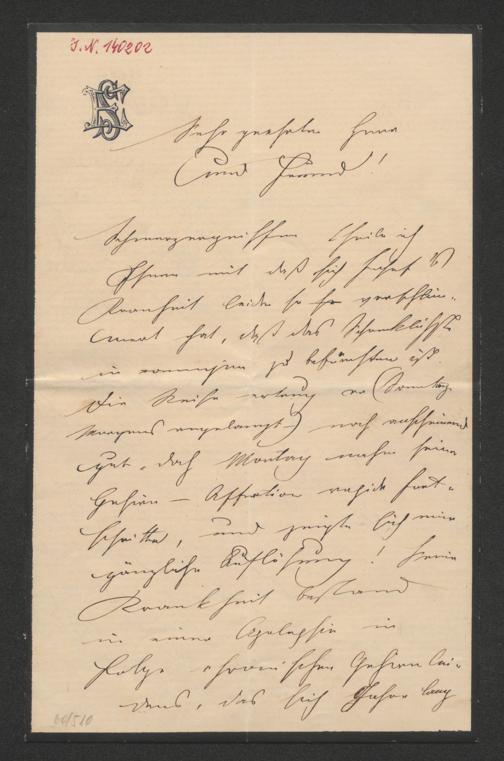 J. N. 140202
Sehr geehrter Herr
und Freund!
Schmerzergriffen theile ich
Ihnen mit daß sich
Krankheit leider so sehr verschlim-
mert hat, daß das Schrecklichste
in zu befürchten ist.
Die Reise ertrug er (Sonntag
Morgens angelangt) noch anscheinend
gut, doch Montag nahm seine
Gehirn-Affection rapide Fort-
schritte, und zeigte sich eine
gänzliche Auflösung! Seine
Krankheit bestand
in einer Apoplepsie in
Folge chronischen Gehirnlei-
dens, das sich Jahre lang
66/510